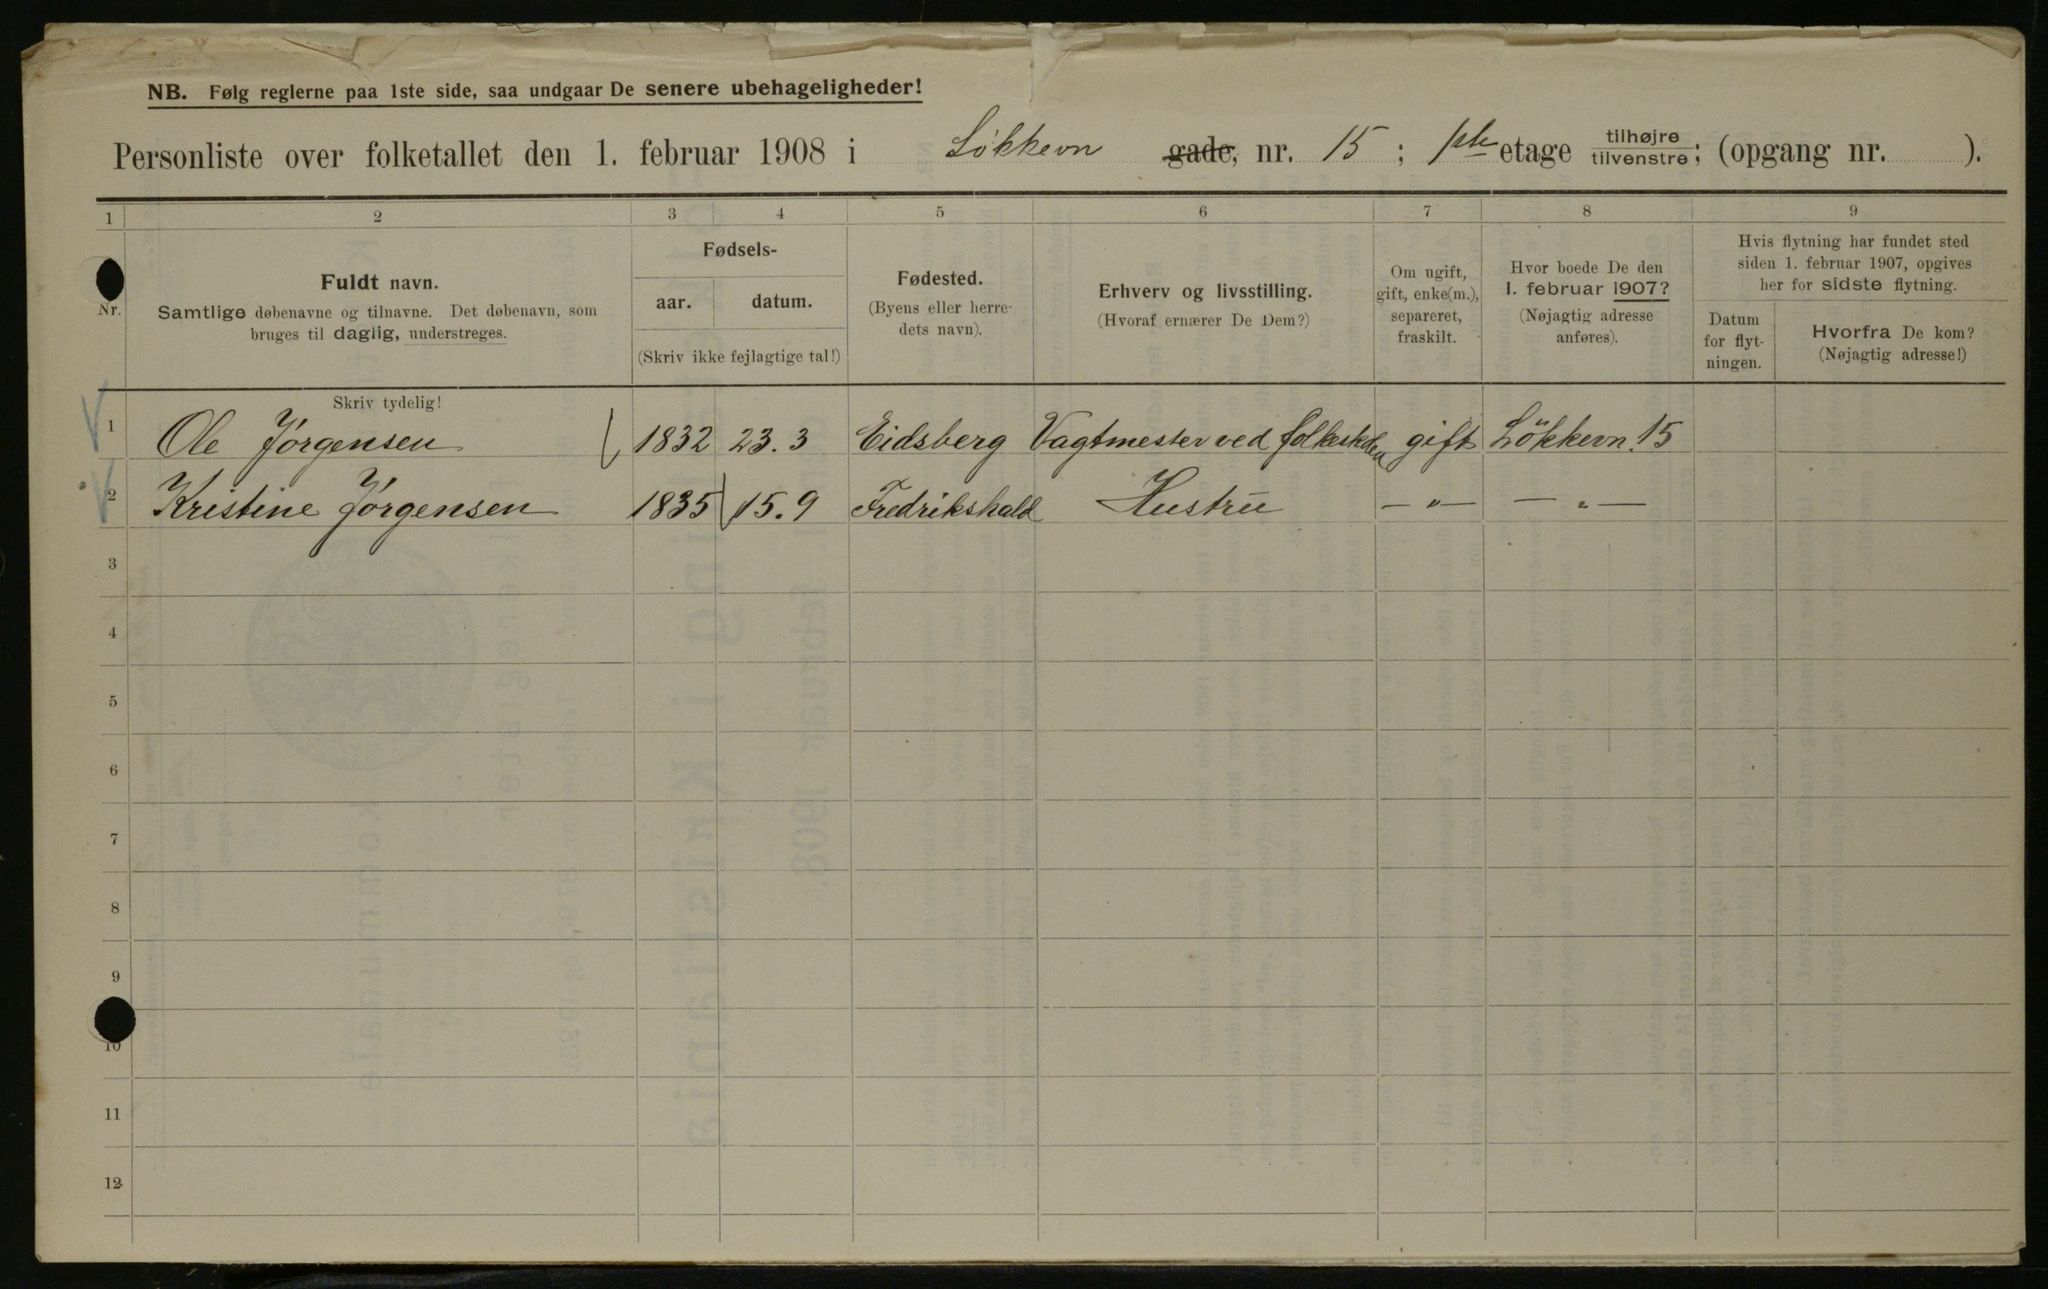 NB. Følg reglerne paa 1ste side, saa undgaar De senere ubehageligheder!
Personliste over folketallet den 1. februar 1908 i Løkkevn gade, nr. 15; 1ste etage tilhøjre tilvenstre; (opgang nr. ).
1 2 3 4 5 6 7 8 9
Nr.
Fuldt navn.
Samtlige døbenavne og tilnavne. Det døbenavn, som
bruges til daglig, understreges.
Fødsels-
aar. datum.
(Skriv ikke fejlagtige tal!)
Fødested.
(Byens eller herre-
dets navn).
Erhverv og livsstilling.
(Hvoraf ernærer De Dem?)
Om ugift,
gift, enke(m.),
separeret,
fraskilt.
Hvor boede De den
1. februar 1907?
(Nøjagtig adresse
anføres).
Hvis flytning har fundet sted
siden 1. februar 1907, opgives
her for sidste flytning.
Datum
for flyt-
ningen.
Hvorfra De kom?
(Nøjagtig adresse!)
Skriv tydelig!
1 Ole Jørgensen 1832 23.3 Eidsberg Vagtmester ved gift Løkkevn. 15
2 Kristine Jørgensen 1835 15.9 Fredrikshald Hustru — " — — " —
3
4
5
6
7
8
9
10
11
12